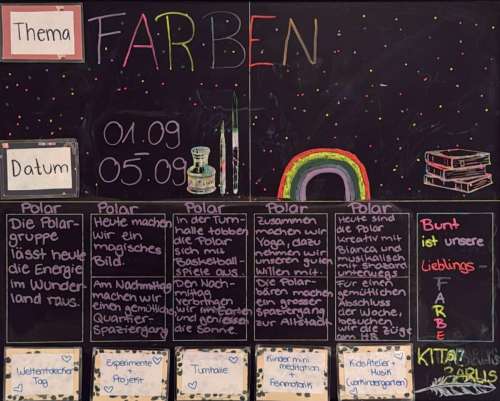 Thema
FARBEN
Datum
01.09
-
05.09
Polar
Die Polar-
gruppe
lässt heute
die Energie
im Wunder-
land raus.
Polar
Heute machen
wir ein
magisches
Bild.
Am Nachmittag
machen wir
einen gemütlichen
Quartier-
Spaziergang
Polar
In der Turn-
halle tobben
die Polar
sich mit
Basketball-
spiele aus.
Den Nach-
mittag
verbringen
wir im Garten
und geniessen
die Sonne.
Polar
Zusammen
machen wir
Yoga, dazu
nehmen wir
unseren guten
Willen mit.
Die Polar-
bären machen
ein grosser
spaziergang
zur Altstadt.
Polar
Heute sind
die Polar
kreativ mit
Bianca und
musikalisch
mit
unterwegs
Für einen
gemütlichen
Abschluss
der Woche,
besuchen
wir die Züge
am HB
Bunt
ist unsere
Lieblings
FARBE
Weltentdecker
Tag
Experimente
+
Projekt
Turnhalle
Kinder mini
meditation
+
Feinmotorik
KidsAtelier +
Musik
(Vorkindergarten)
KITA